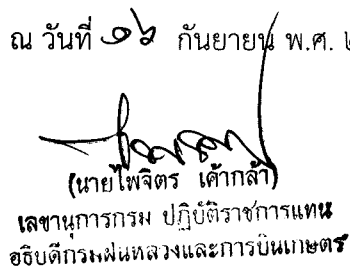 ณ วันที่ ๑๖ กันยายน พ.ศ. ๒
(นายไพจิตร เค้ากล้า)
เลขานุการกรม ปฏิบัติราชการแทน
อธิบดีกรมฝนหลวงและการบินเกษตร